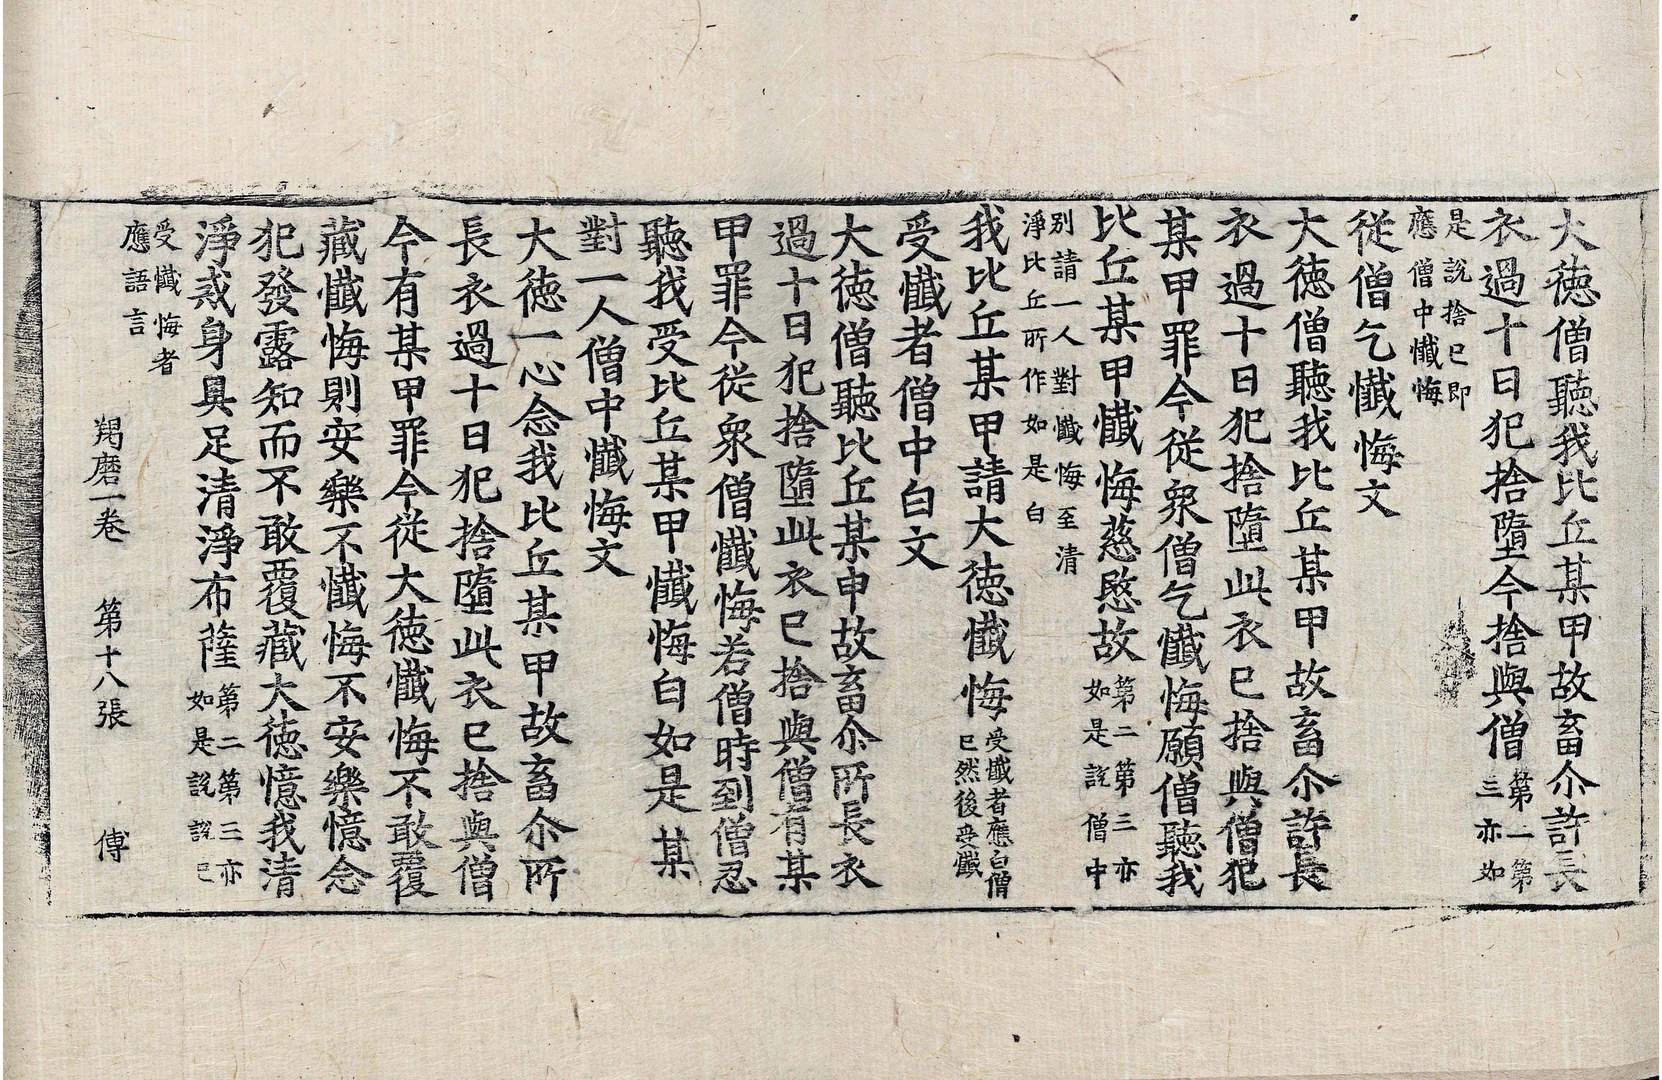 大徳僧聽我比丘某甲故畜尒許長
衣過十日犯捨墮今捨與僧第一第
三亦如
是說捨已即
應僧中懺悔
従僧乞懺悔文
大徳僧聽我比丘某甲故畜尒許長
衣過十日犯捨墮此衣已捨與僧犯
某甲罪今従衆僧乞懺悔願僧聽我
比丘某甲懺悔慈愍故第二第三亦
如是說僧中
別請一人對懺悔至清
淨比丘所作如是白
我比丘某甲請大徳懺悔受懺者應白僧
已然後受懺
受懺者僧中白文
大徳僧聽比丘某甲故畜尒所長衣
過十日犯捨墮此衣已捨與僧有某
甲罪今従衆僧懺悔若僧時到僧忍
聽我受比丘某甲懺悔白如是某
對一人僧中懺悔文
大徳一心念我比丘某甲故畜尒所
長衣過十日犯捨墮此衣已捨與僧
今有某甲罪今従大徳懺悔不敢覆
藏懺悔則安樂不懺悔不安樂憶念
犯發露知而不敢覆藏大徳憶我清
淨戒身具足清淨布薩第二第三亦
如是說說已
受懺悔者
應語言
羯磨一卷 第十八張 傅